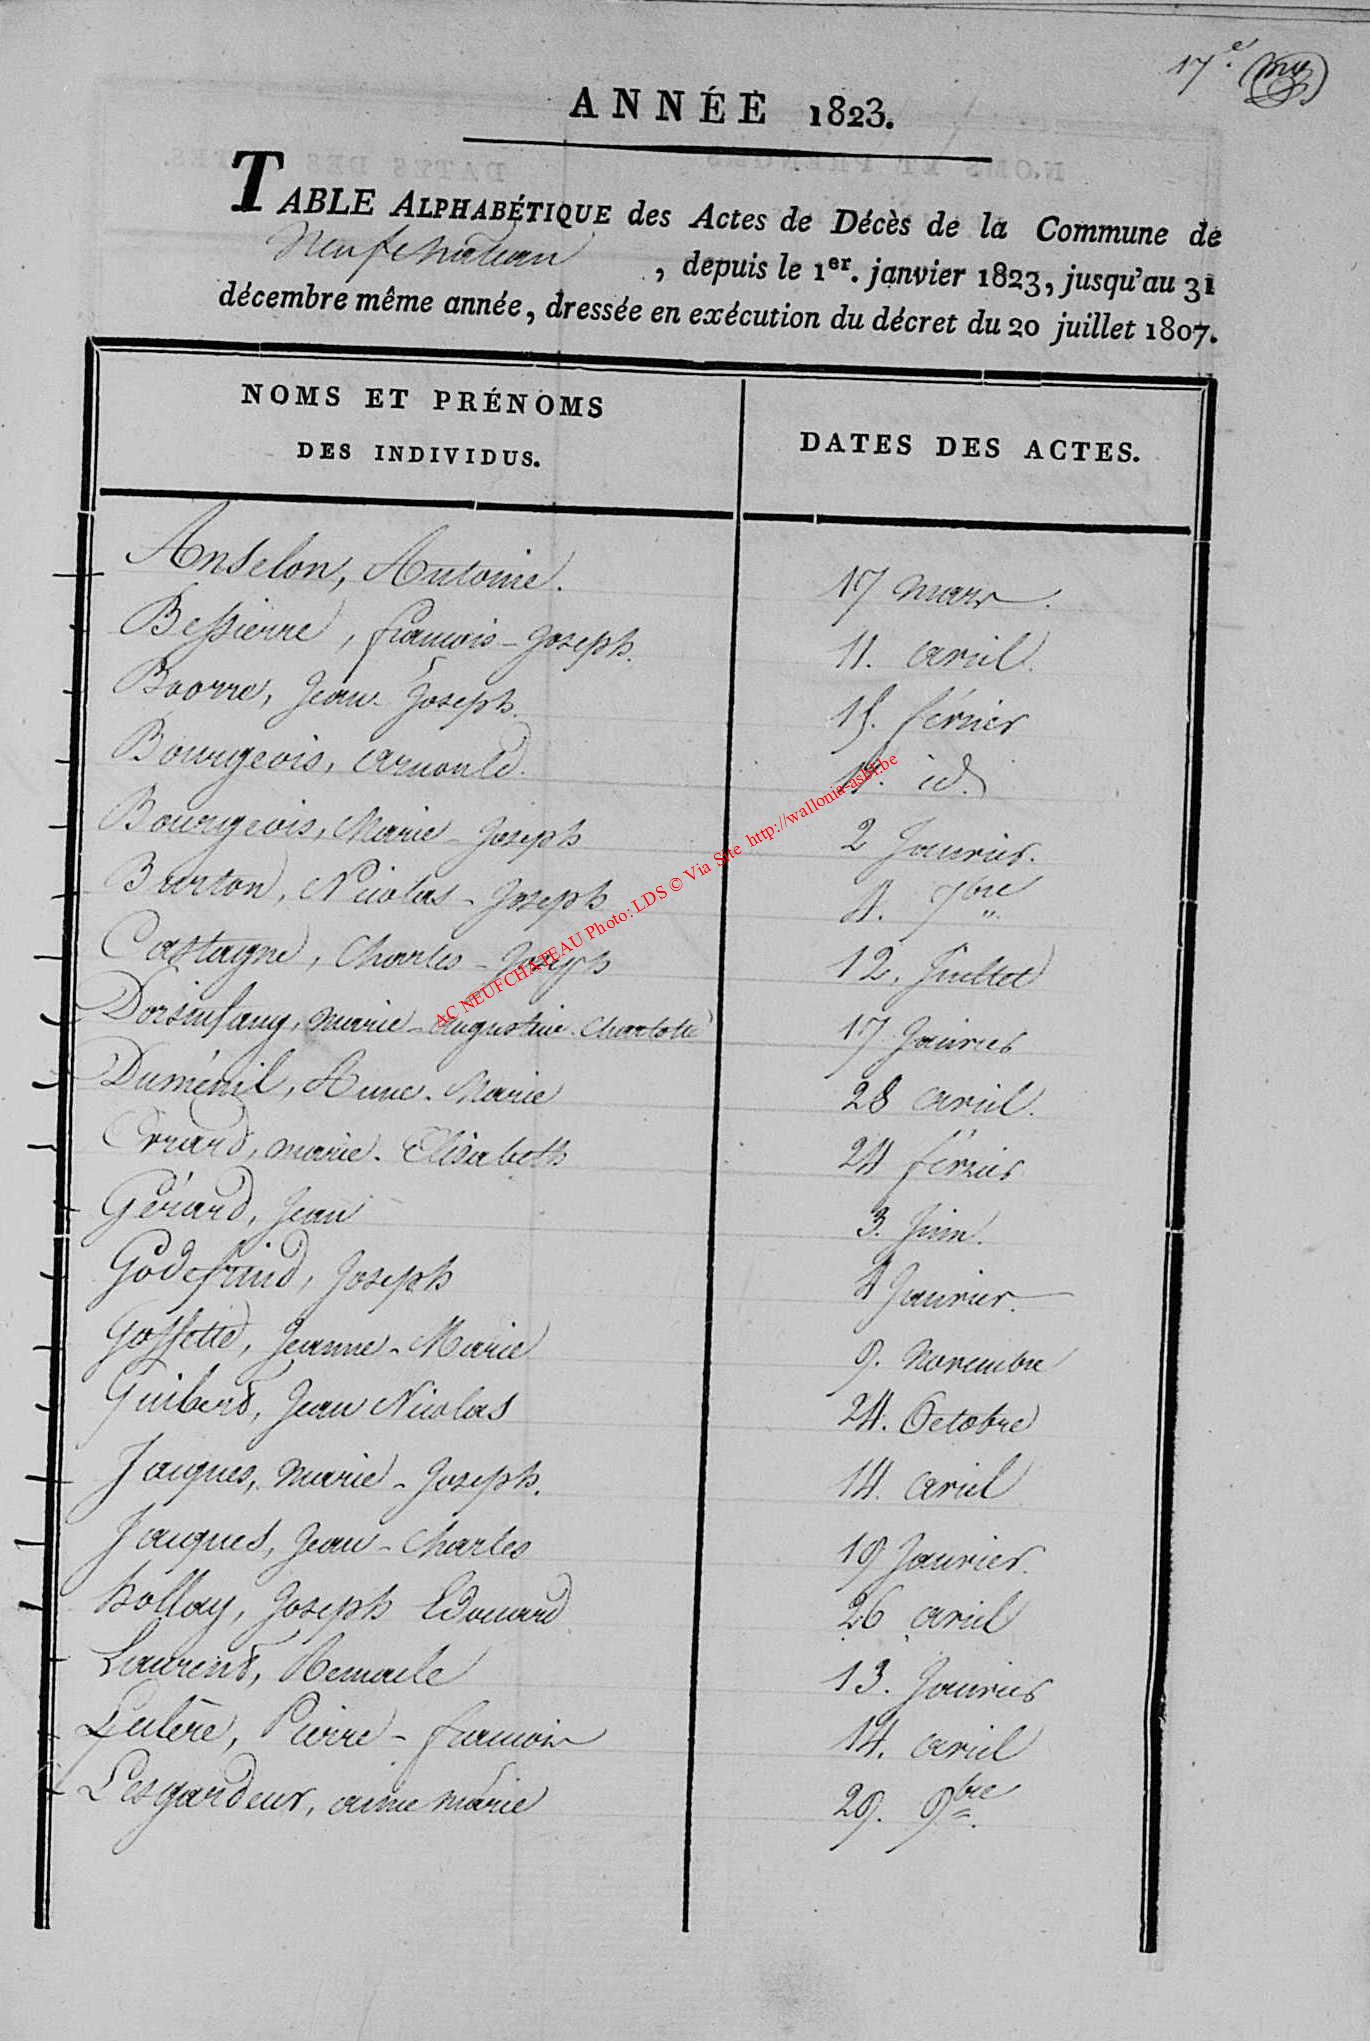 17e.
ANNÉE 1823.
TABLE ALPHABÉTIQUE des Actes de Décès de la Commune de
Neufchateau, depuis le 1er. janvier 1823, jusqu'au 31
décembre même année, dressée en exécution du décret du 20 juillet 1807.
NOMS ET PRÉNOMS
DES INDIVIDUS.
DATES DES ACTES.
Anselon, Antoine. 17 mars.
Bessierre, francois-Joseph. 11. avril.
Boorre, Jean-Joseph. 15. février
Bourgeois, Arnould. id.
Bourgeois, Marie-Joseph 2 Janvier.
Burton, Nicolas-Joseph 4. 7bre
Castagne, Charles-Joseph 12. Juillet
Dorsinfang, marie-Augustine-Charlotte 17 Janvier
Duménil, Anne-Marie 28 avril.
Erard, marie-Elisabeth 24 février
Gérard, Jean 3. Juin.
Godefroid, Joseph 4 Janvier.
Goffette, Jeanne-Marie 9. Novembre
Guibert, Jean Nicolas 24. Octobre
Jacques, Marie-Joseph. 14. avril
Jacques, Jean-Charles 19 Janvier.
Hollay, Joseph Edouard 26 avril
Laurent, Remacle 13. Janvier
Lulère, Pierre-francois 14. avril
Lesgardeur, anne marie 29. 9bre.
AC NEUFCHATEAU Photo: LDS © Via Site http://wallonia-asbl.be